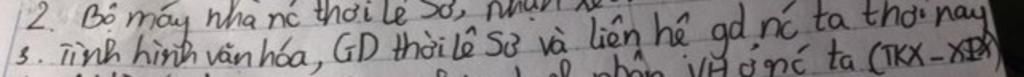 2. Bộ máy nhà nc thời lê sơ, nhận xé
3. Tình hình văn hóa, GD thời Lê Sơ và liên hệ gd nc ta thời nay
VH ở nc ta (TKX - XIX)